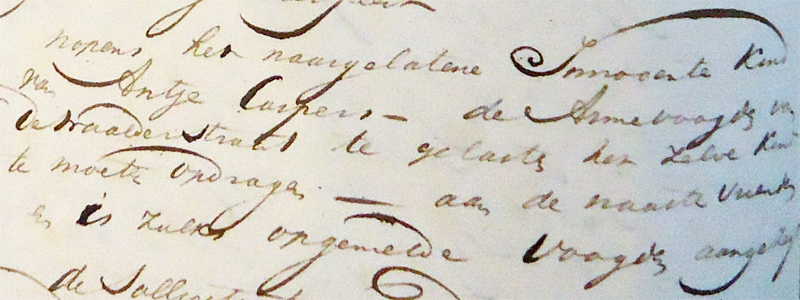 nopens het naargelatene Innocente Kind
van Antje Caspers — de Armevoogden van
de straat te gelasten het zelve Kind
te moeten opdragen — aan de naaste Vrienden
en is zulks opgemelde Voogden
de